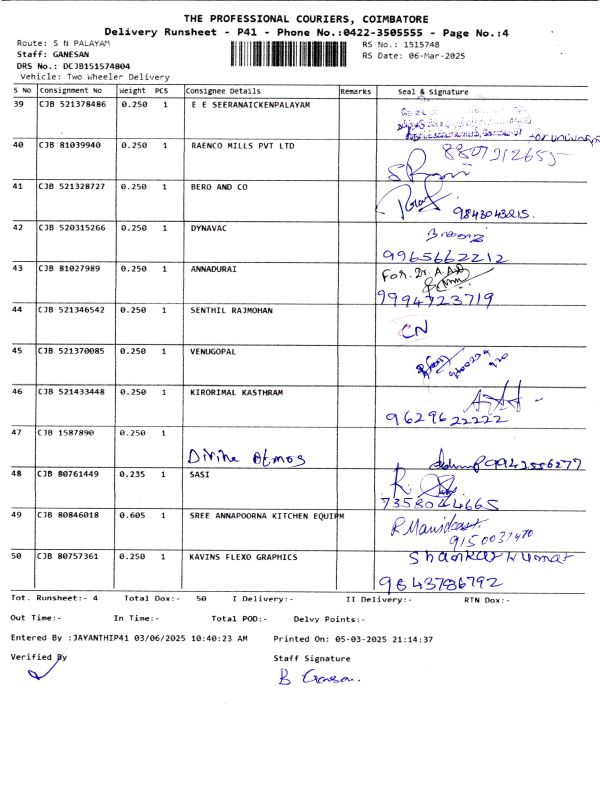 THE PROFESSIONAL COURIERS, COIMBATORE
Delivery Runsheet - P41 - Phone No.:0422-3505555 - Page No.:4
Route: S N PALAYAM RS No.: 1515748
Staff: GANESAN RS Date: 06-Mar-2025
DRS No.: DCJB151574804
Vehicle: Two Wheeler Delivery
S No Consignment No Weight PCS Consignee Details Remarks Seal & Signature
39 CJB 521378486 0.250 1 E E SEERANAICKENPALAYAM
40 CJB 81039940 0.250 1 RAENCO MILLS PVT LTD
41 CJB 521328727 0.250 1 BERO AND CO 9843043215.
42 CJB 520315266 0.250 1 DYNAVAC
9965662212
43 CJB 81027989 0.250 1 ANNADURAI For. Dr. A.
9994723719
44 CJB 521346542 0.250 1 SENTHIL RAJMOHAN
CN
45 CJB 521370085 0.250 1 VENUGOPAL
46 CJB 521433448 0.250 1 KIRORIMAL KASTHRAM
9629622222
47 CJB 1587890 0.250 1
Divine Atmos 9942556277
48 CJB 80761449 0.235 1 SASI R.
7358044665
49 CJB 80846018 0.605 1 SREE ANNAPOORNA KITCHEN EQUIPM
9150037470
50 CJB 80757361 0.250 1 KAVINS FLEXO GRAPHICS Shankar kumar
9843786792
Tot. Runsheet:- 4 Total Dox:- 50 I Delivery:- II Delivery:- RTN Dox:-
Out Time:- In Time:- Total POD:- Delvy Points:-
Entered By :JAYANTHIP41 03/06/2025 10:40:23 AM Printed On: 05-03-2025 21:14:37
Verified By Staff Signature